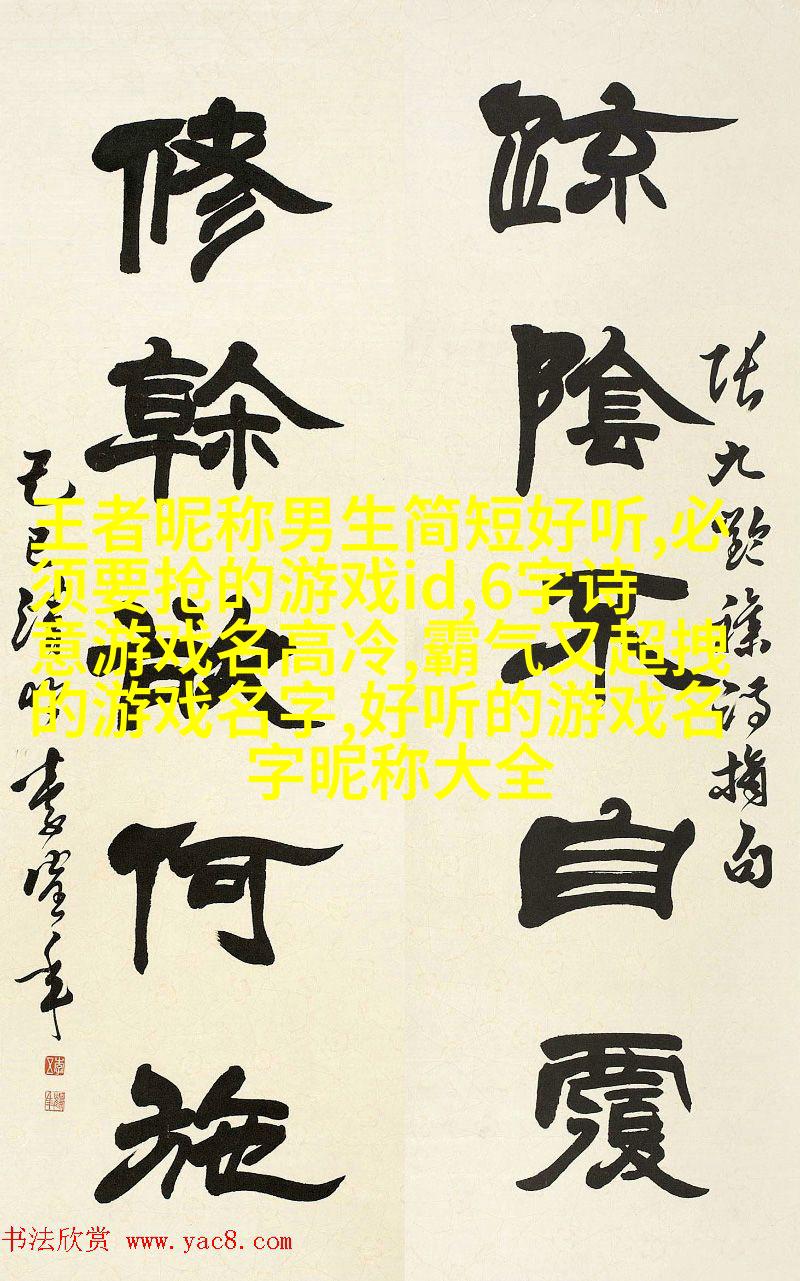 疏陰不自覆
修幹欲何施
張九齡詩摘句
己巳清明
李澤年
王者昵称男生简短好听,必
须要抢的游戏id,6字诗
意游戏名高冷,霸气又超拽
的游戏名字,好听的游戏名
字昵称大全
书法欣赏 www.yac8.com